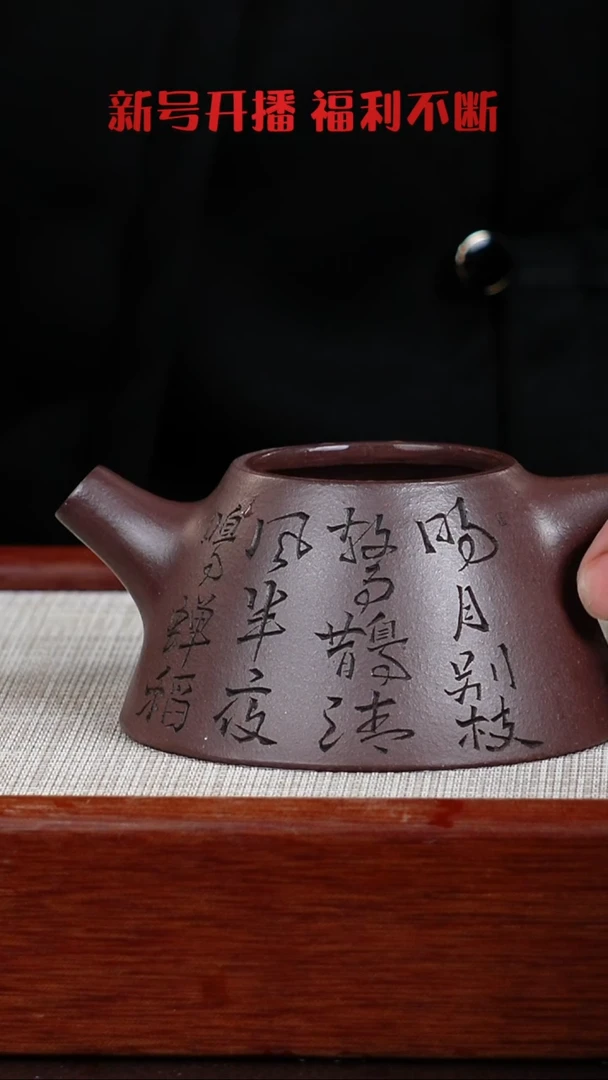 新号开播 福利不断
明月别枝
驚鵲清
风半夜
鳴蟬稻